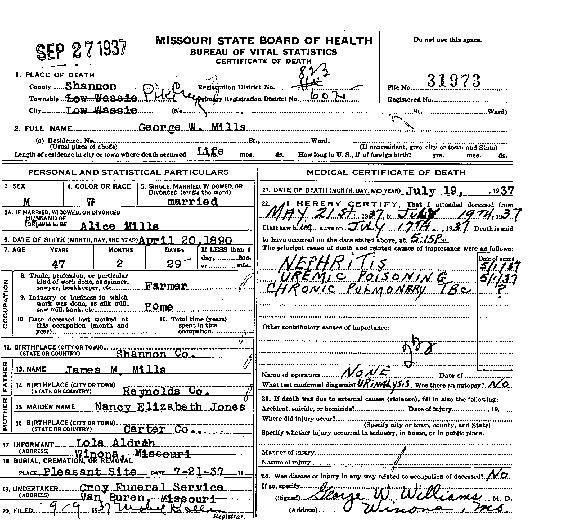 SEP 27 1937
MISSOURI STATE BOARD OF HEALTH
BUREAU OF VITAL STATISTICS
CERTIFICATE OF DEATH
Do not use this space.
1. PLACE OF DEATH
County Shannon Registration District No.
Township Low Wassie Primary Registration District No.
City Low Wassie (No. St., Ward)
File No. 31973
Registered No.
2. FULL NAME George W. Mills
(a) Residence. No. St., Ward.
(Usual place of abode) (If nonresident, give city or town and State)
Length of residence in city or town where death occurred Life mos. ds. How long in U.S., if of foreign birth? yrs. mos. ds.
PERSONAL AND STATISTICAL PARTICULARS
3. SEX 4. COLOR OR RACE 5. SINGLE, MARRIED, WIDOWED, OR DIVORCED (write the word)
M W married
5A. IF MARRIED, WIDOWED, OR DIVORCED
HUSBAND OF
(OR) WIFE OF Alice Mills
6. DATE OF BIRTH (MONTH, DAY, AND YEAR) April 20, 1890
7. AGE YEARS MONTHS DAYS If LESS than 1 day, hrs. or min.
47 2 29
OCCUPATION
8. Trade, profession, or particular kind of work done, as spinner, sawyer, bookkeeper, etc. Farmer
9. Industry or business in which work was done, as silk mill, saw mill, bank, etc.
10. Date deceased last worked at this occupation (month and year)
11. Total time (years) spent in this occupation
12. BIRTHPLACE (CITY OR TOWN)
(STATE OR COUNTRY) Shannon Co.
FATHER
13. NAME James M. Mills
14. BIRTHPLACE (CITY OR TOWN)
(STATE OR COUNTRY) Reynolds Co.
MOTHER
15. MAIDEN NAME Nancy Elizabeth Jones
16. BIRTHPLACE (CITY OR TOWN)
(STATE OR COUNTRY) Carter Co.
17. INFORMANT Lola Aldrah
(ADDRESS) Winona, Missouri
18. BURIAL, CREMATION, OR REMOVAL
PLACE Pleasant Site DATE 7-21-37
19. UNDERTAKER Croy Funeral Service
(ADDRESS) Van Buren, Missouri
20. FILED 9/9 37
Registrar.
MEDICAL CERTIFICATE OF DEATH
21. DATE OF DEATH (MONTH, DAY, AND YEAR) July 19, 1937
22. I HEREBY CERTIFY, That I attended deceased from
MAY 21ST 1937, to JULY 19TH, 1937
I last saw him alive on JULY 17TH, 1937 Death is said
to have occurred on the date stated above, at 5:15 P.
The principal cause of death and related causes of importance were as follows:
Date of onset
NEPHRITIS 5/1/37
UREMIC POISONING 5/1/37
CHRONIC PULMONERY TBC ?
Other contributory causes of importance:
Name of operation NONE Date of
What test confirmed diagnosis? URINALYSIS Was there an autopsy? NO
23. If death was due to external causes (violence), fill in also the following:
Accident, suicide, or homicide? Date of injury , 19
Where did injury occur?
(Specify city or town, county, and State)
Specify whether injury occurred in industry, in home, or in public place.
Manner of injury
Nature of injury
24. Was disease or injury in any way related to occupation of deceased? NO
If so, specify
(Signed) George W. Williams, M. D.
(Address) Winona, Mo